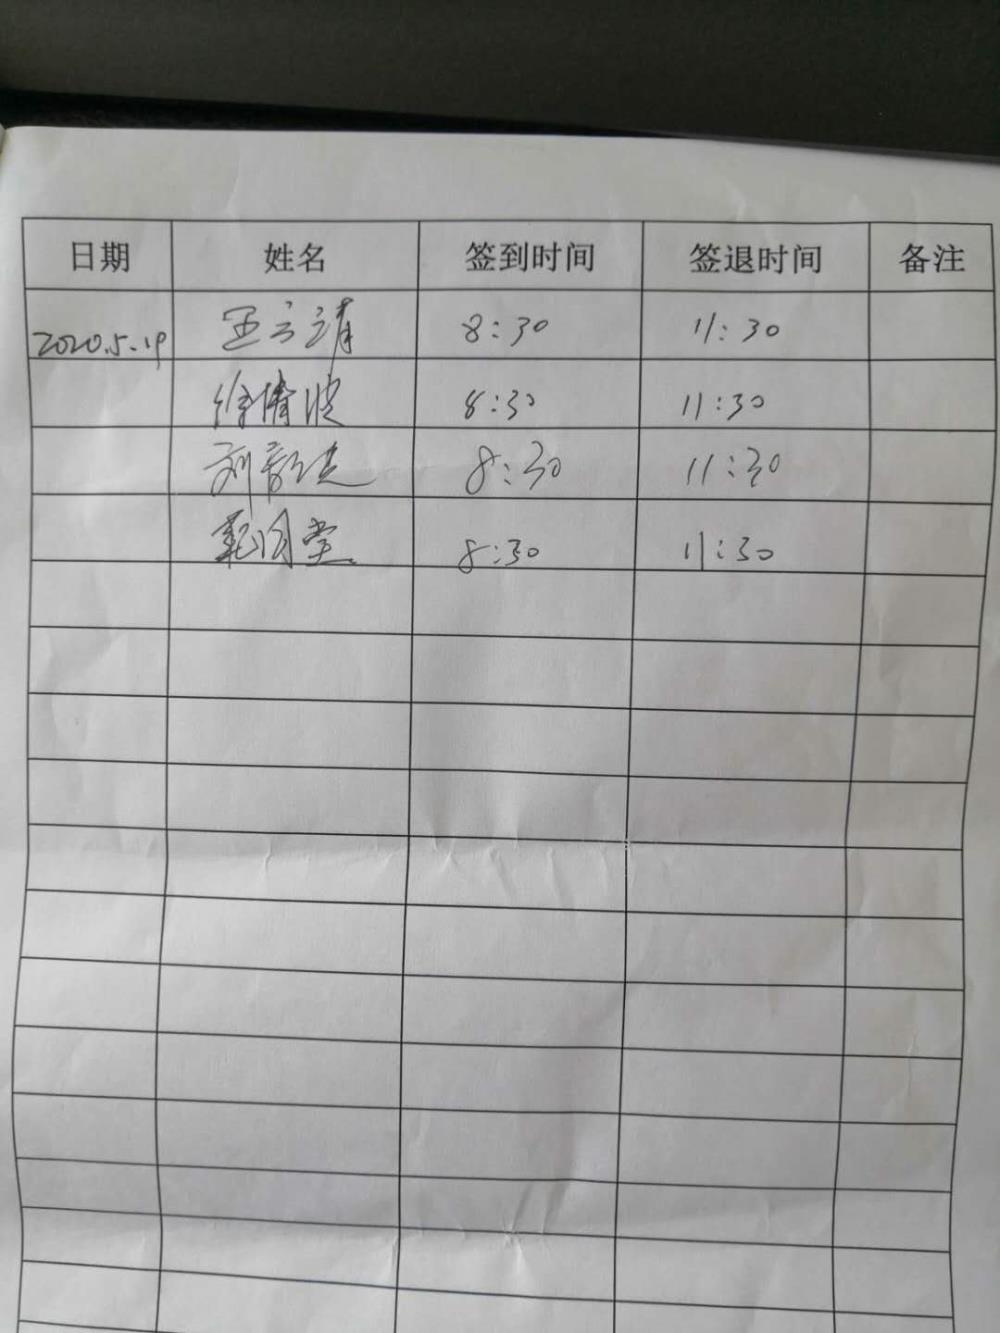 日期 姓名 签到时间 签退时间 备注
2020.5.19 王立靖 8:30 11:30
徐倩波 8:30 11:30
刘 8:30 11:30
8:30 11:30